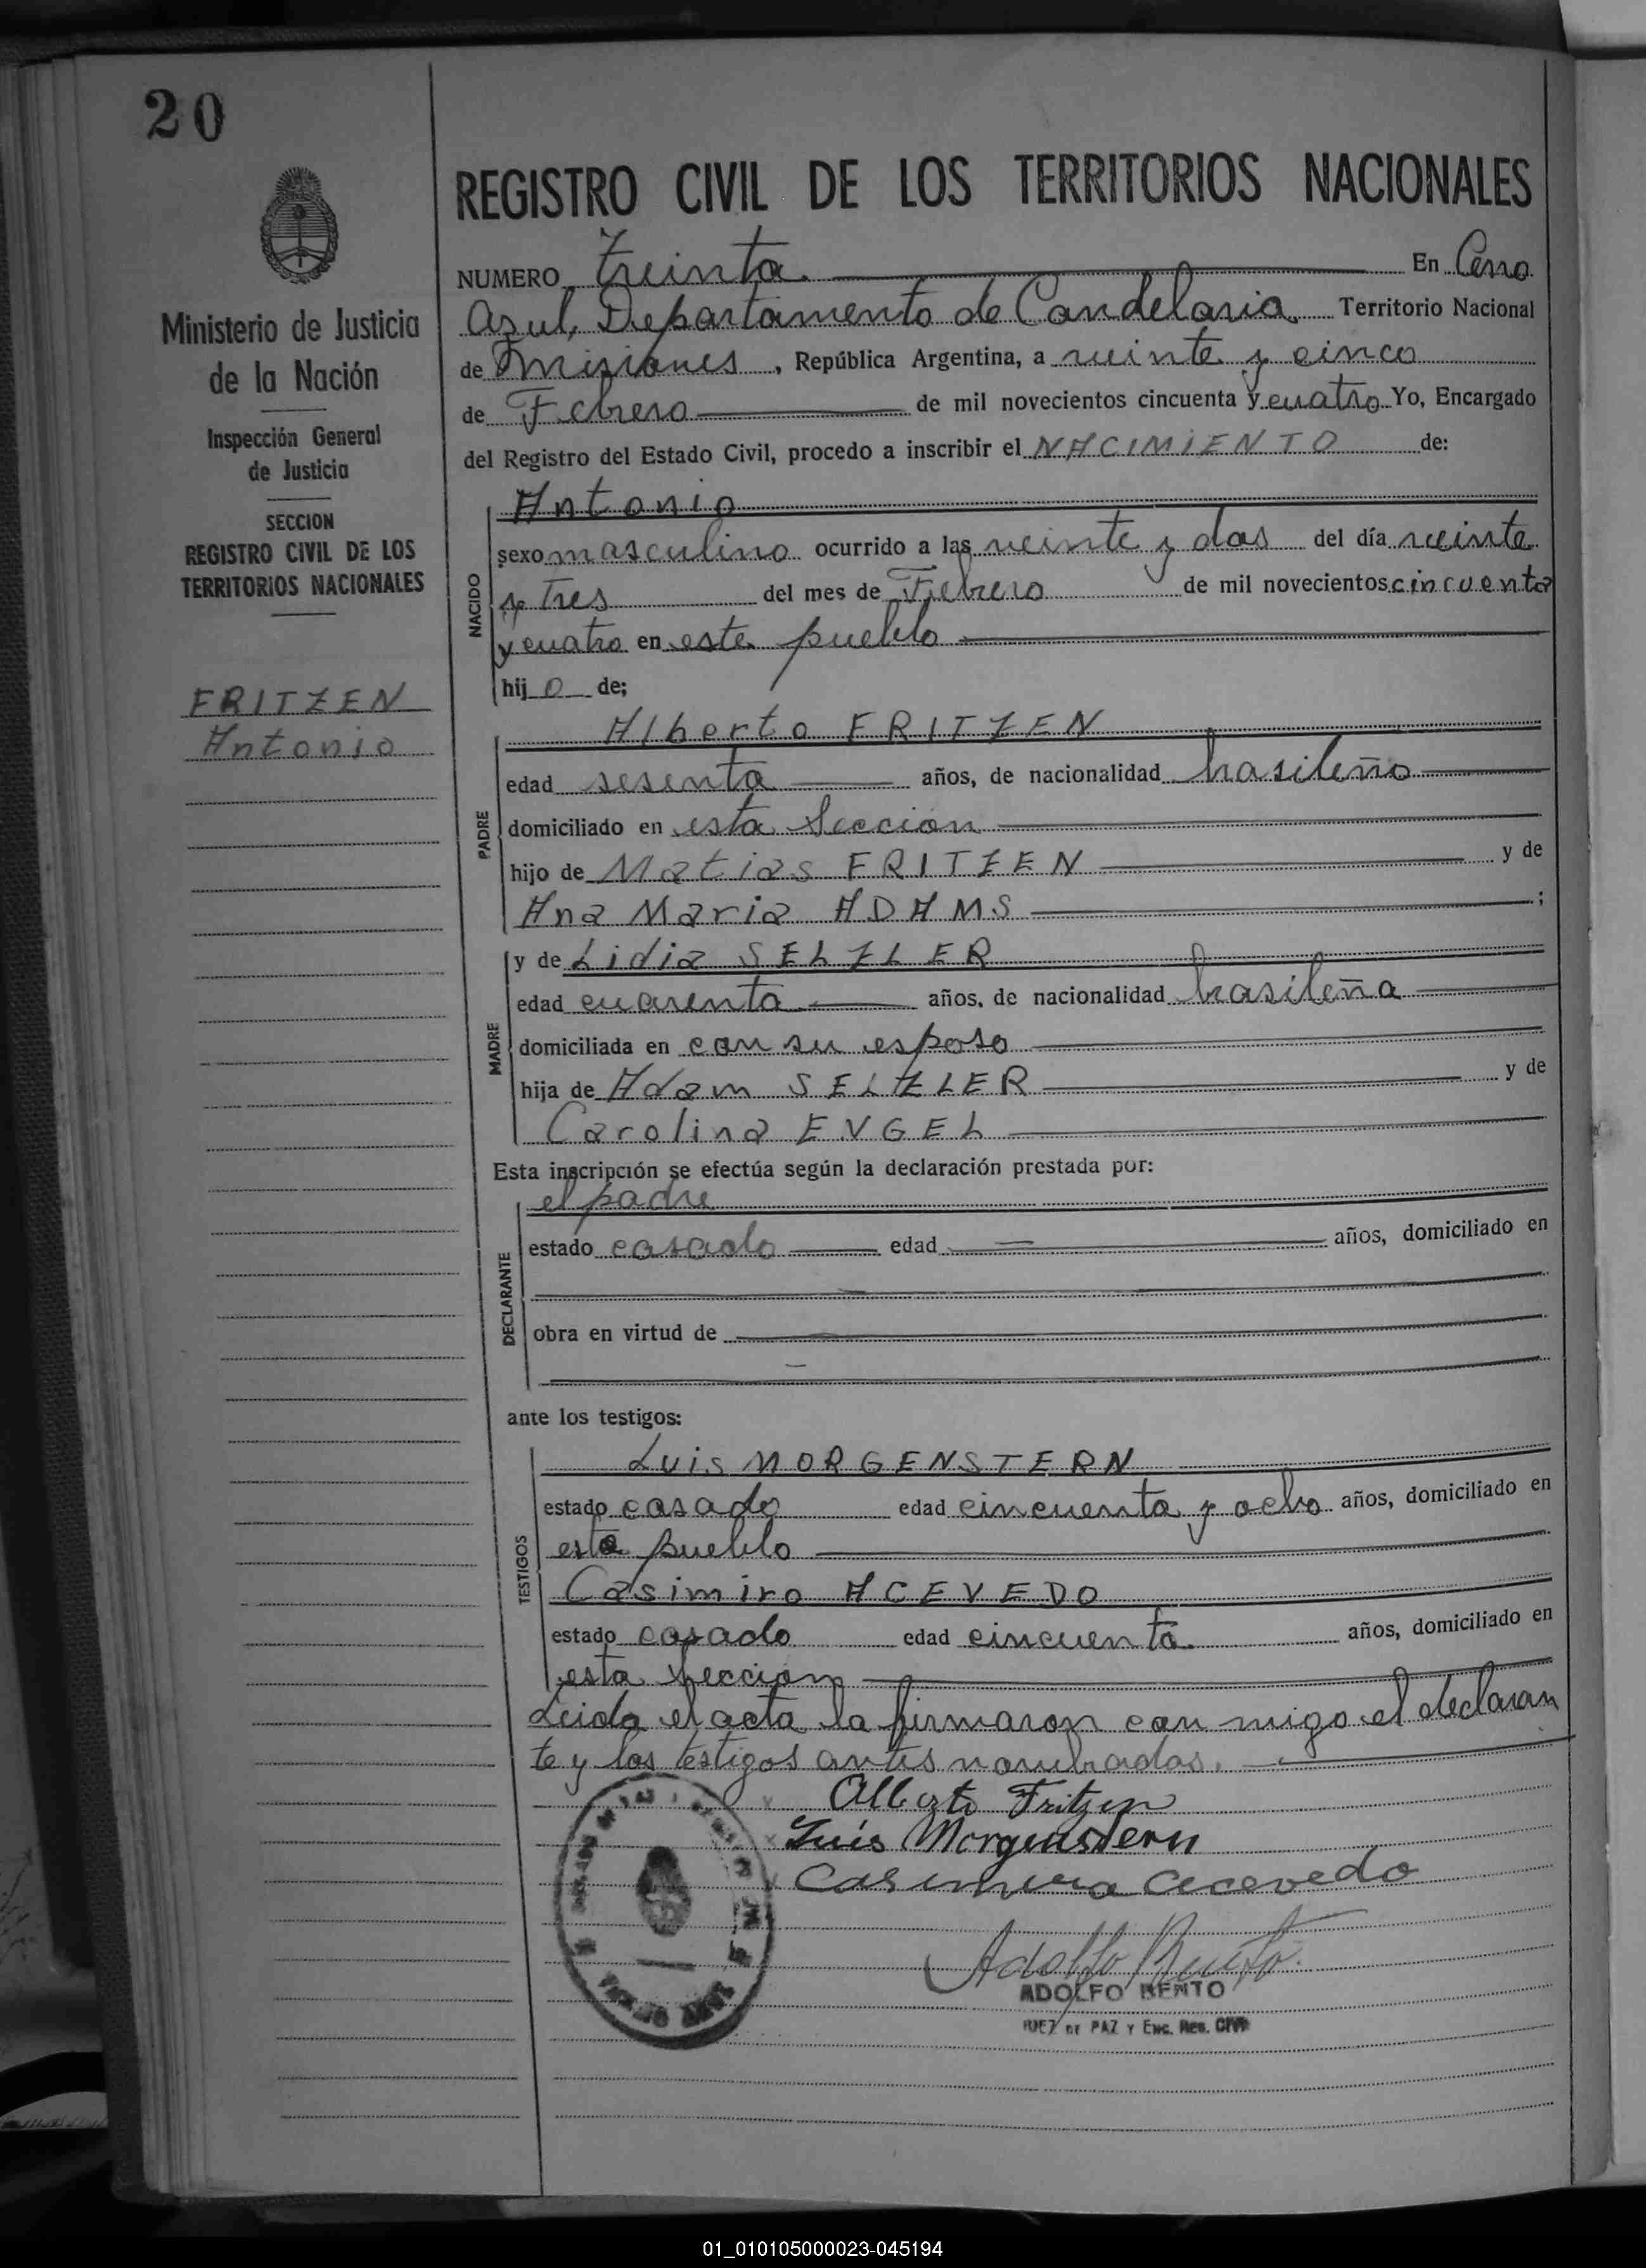 20
REGISTRO CIVIL DE LOS TERRITORIOS NACIONALES
Ministerio de Justicia
de la Nación
Inspección General
de Justicia
SECCION
REGISTRO CIVIL DE LOS
TERRITORIOS NACIONALES
FRITZEN
Antonio
NUMERO Treinta En Cerro
Azul, Departamento de Candelaria Territorio Nacional
de Misiones, República Argentina, a veinte y cinco
de Febrero de mil novecientos cincuenta y cuatro Yo, Encargado
del Registro del Estado Civil, procedo a inscribir el NACIMIENTO de:
NACIDO
Antonio
sexo masculino ocurrido a las veinte y dos del día veinte
y tres del mes de Febrero de mil novecientos cincuenta
y cuatro en este pueblo
hijo de;
PADRE
Alberto FRITZEN
edad sesenta años, de nacionalidad brasileño
domiciliado en esta Seccion
hijo de Matias FRITZEN y de
Ana Maria ADAMS ;
MADRE
y de Lidia SELZLER
edad cuarenta años, de nacionalidad brasileña
domiciliada en con su esposo
hija de Adam SELZLER y de
Carolina ENGEL
Esta inscripción se efectúa según la declaración prestada por:
DECLARANTE
el padre
estado casado edad años, domiciliado en
obra en virtud de
ante los testigos:
TESTIGOS
Luis MORGENSTERN
estado casado edad cincuenta y ocho años, domiciliado en
este pueblo
Casimiro ACEVEDO
estado casado edad cincuenta años, domiciliado en
esta Seccion
Leida el acta la firmaron con migo el declaran
te y los testigos antes nombrados.
Alberto Fritzen
Luis Morgenstern
Casimiro Acevedo
Adolfo Bento
ADOLFO BENTO
JUEZ DE PAZ Y ENC. REG. CIVIL
01_010105000023-045194